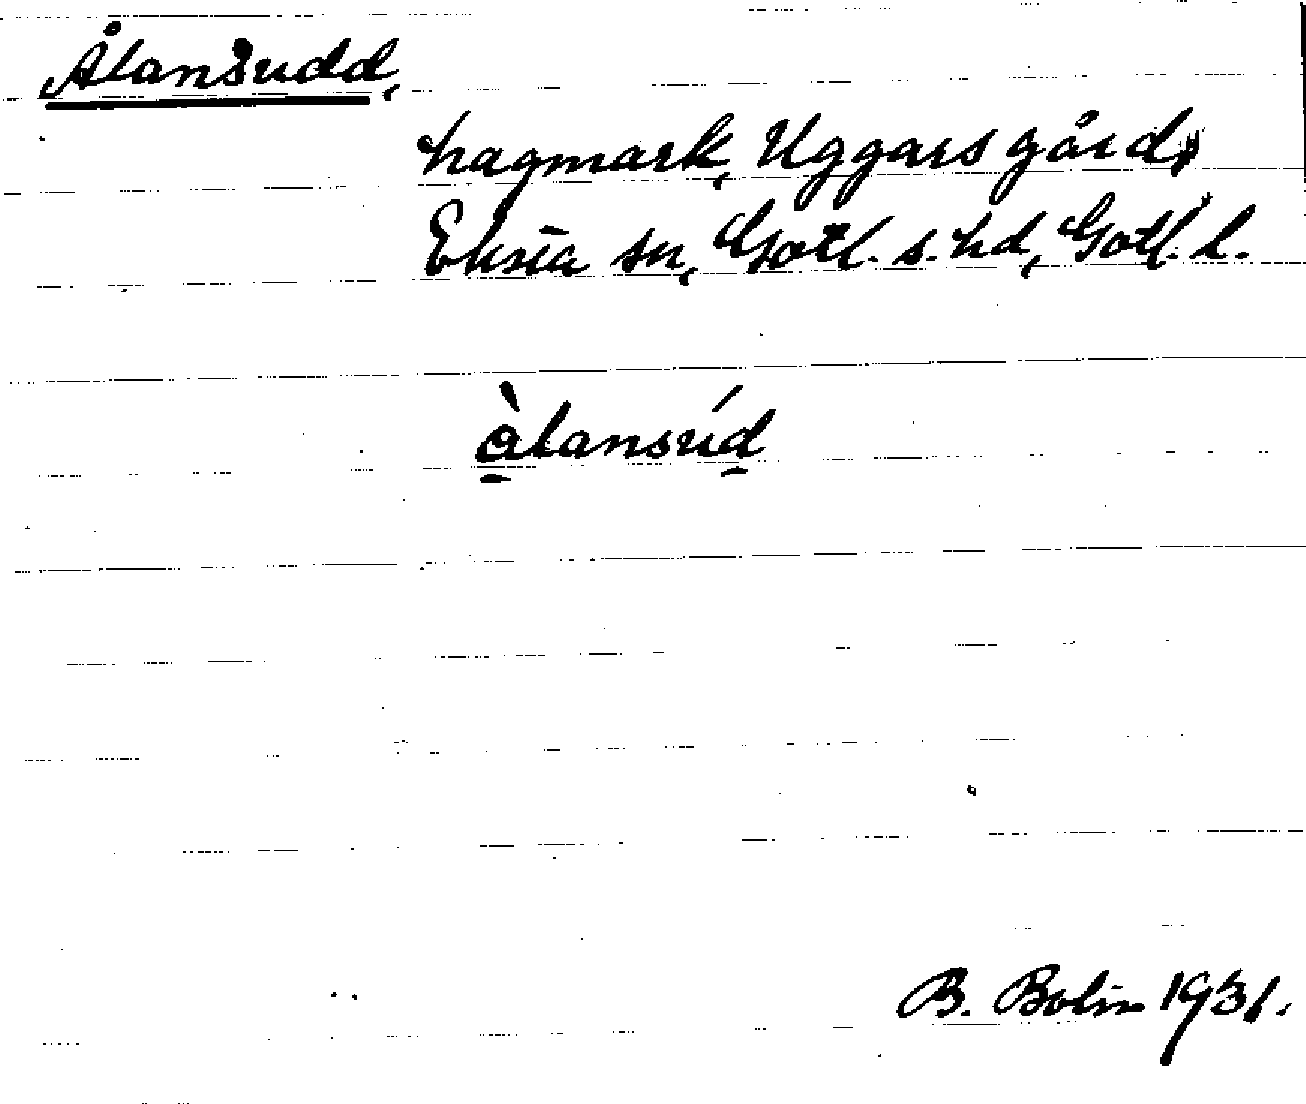 Ålansudd,
hagmark, Uggars gård,
Eksta sn, Gotl. s. hd, Gotl. l.
àlansúd
B. Bolin 1931.